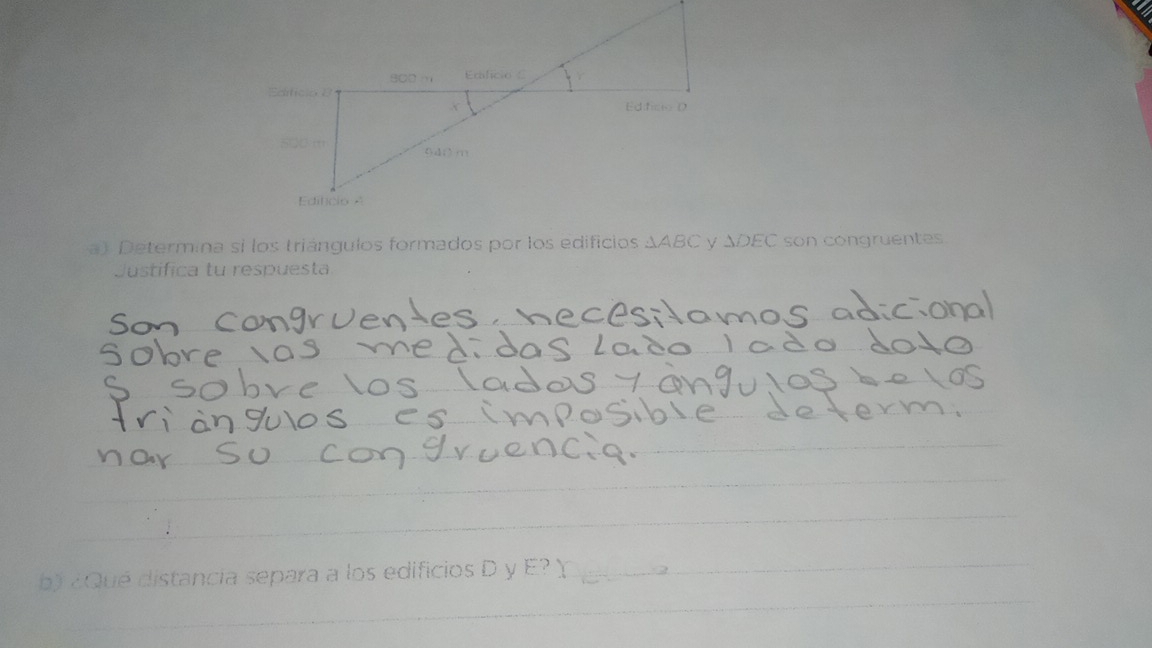 800 m
Edificio C
Edificio B
x
Y
Edificio D
500 m
Edificio A
a) Determina si los triángulos formados por los edificios ΔABC y ΔDEC son congruentes.
Justifica tu respuesta
son congruentes. necesitamos adicional
sobre las medidas lado lado dato
s sobre los lados y ángulos be los
triángulos es imposible determi
nar su congruencia.
b) ¿Qué distancia separa a los edificios D y E? Y